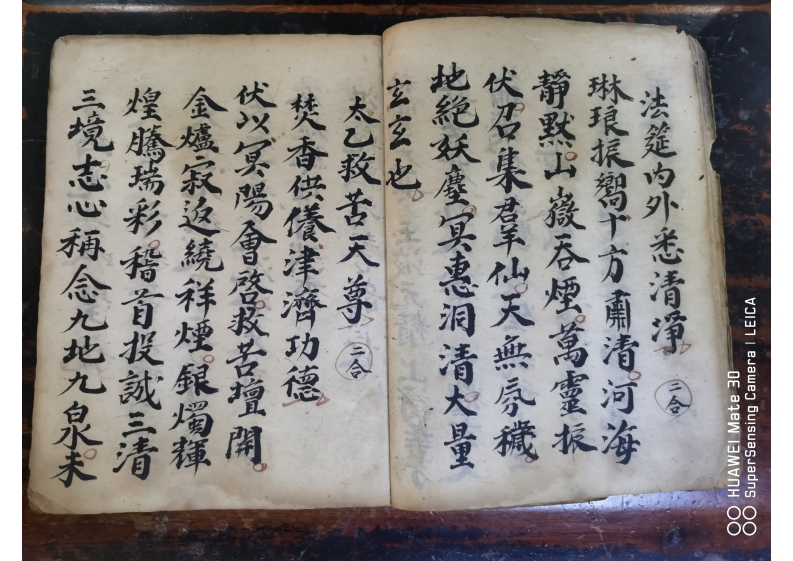 法筵內外悉清淨 二合
琳琅振嚮十方肅清河海
靜默山嶽吞煙萬靈振
伏召集群仙天無氛穢
地絕妖塵冥惠洞清大量
玄玄也
太乙救苦天尊 二合
焚香供養津濟功德
伏以冥陽會啓救苦壇開
金爐寂返繞祥煙銀燭輝
煌騰瑞彩稽首投誠三清
三境志心稱念九地九泉未
HUAWEI Mate 30
SuperSensing Camera | LEICA